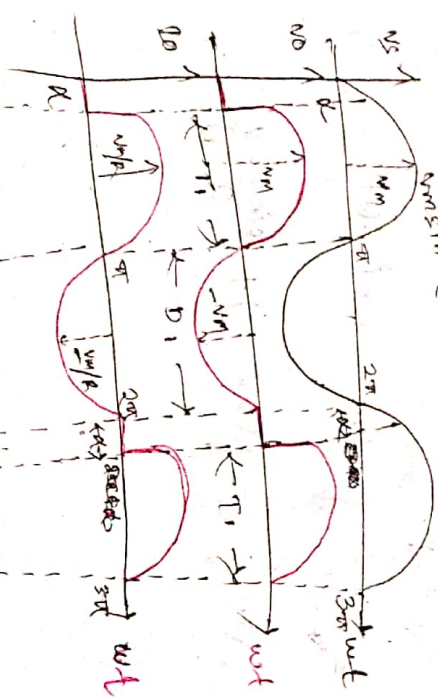 Vs
Vm
π
2π
3π
wt
Vo
α
Vm
-Vm
← T1 →
← D1 →
← T1 →
wt
Io
α
Vm/R
π
Vm/R
2π
3π
wt